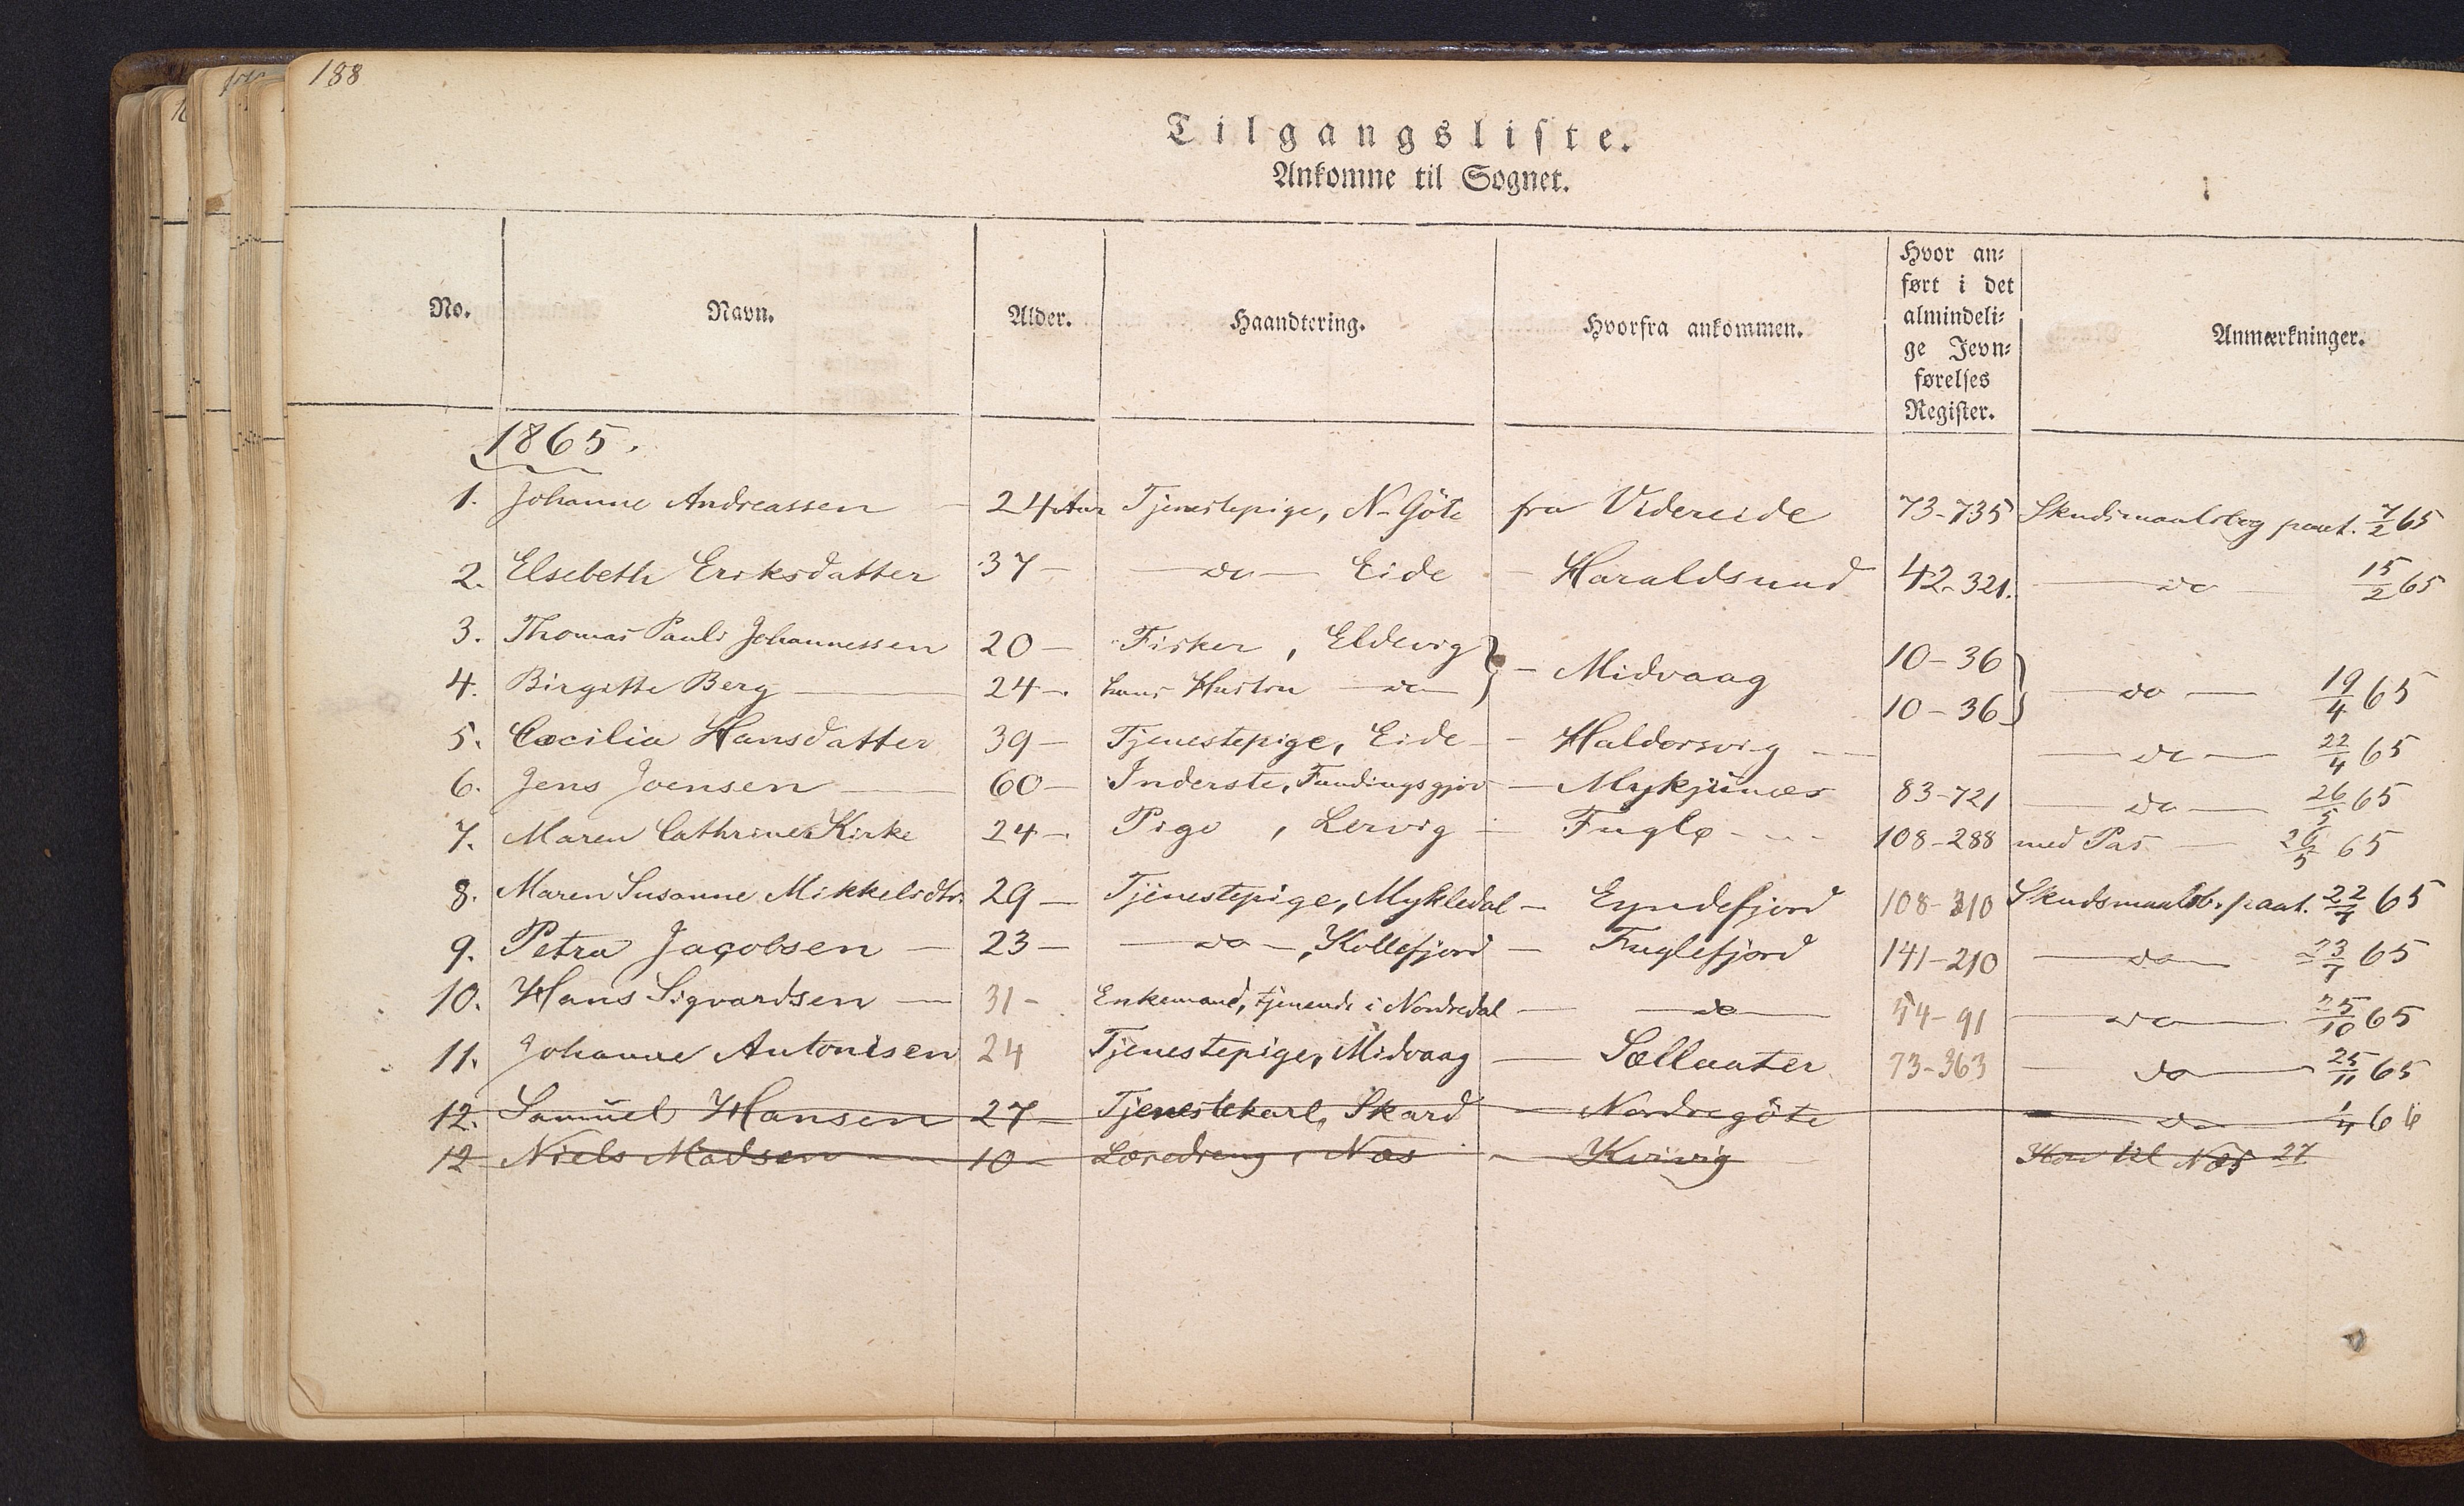 188
Tilgangsliste.
Ankomne til Sognet.
No. Navn. Alder. Haandtering. Hvorfra ankommen. Hvor anført i det almindelige Jevnførelses Register. Anmærkninger.
1865.
1. Johanne Andreassen 24 Aar Tjenestepige, N. Göte fra Videreide 73-735 Skudsmaalsbog paat. 7/2 65
2. Elsebeth Eriksdatter 37 — do — Eide — Haraldsund 42-321. — do — 15/2 65
3. Thomas Pauli Johannessen 20 — Fisker, Eldevig } — Midvaag 10-36 } — do — 19/4 65
4. Birgitte Berg — 24 — hans Hustru — do — 10-36
5. Cæcilia Hansdatter 39 — Tjenestepige, Eide — Haldorsvig — do — 22/4 65
6. Jens Joensen — 60 — Inderste, Fundingsgjov — Mykjünæs 83-721 — do — 26/5 65
7. Maren Cathrine Kirke 24 — Pige, Lervig — Fuglø 108-288 med Pas — 26/5 65
8. Maren Susanne Mikkelsdtr. 29 — Tjenestepige, Mykledal — Eyndefjord 108-310 Skudsmaalsb. paat. 22/7 65
9. Petra Jacobsen — 23 — do —, Kollefjord — Fuglefjord 141-210 — do — 23/7 65
10. Hans Sigvardsen — 31 — Enkemand, tjenende i Nordredal — do — 54-91 — do — 25/10 65
11. Johanne Antonisen 24 Tjenestepige, Midvaag — Sællaater 73-363 — do — 25/11 65
12. Samuel Hansen 27 — Tjenestekarl, Skard — Nordregöte — do — 1/4 66
12 Niels Madsen — 10 — Læredreng, Næs — Kvivig til Næs 27